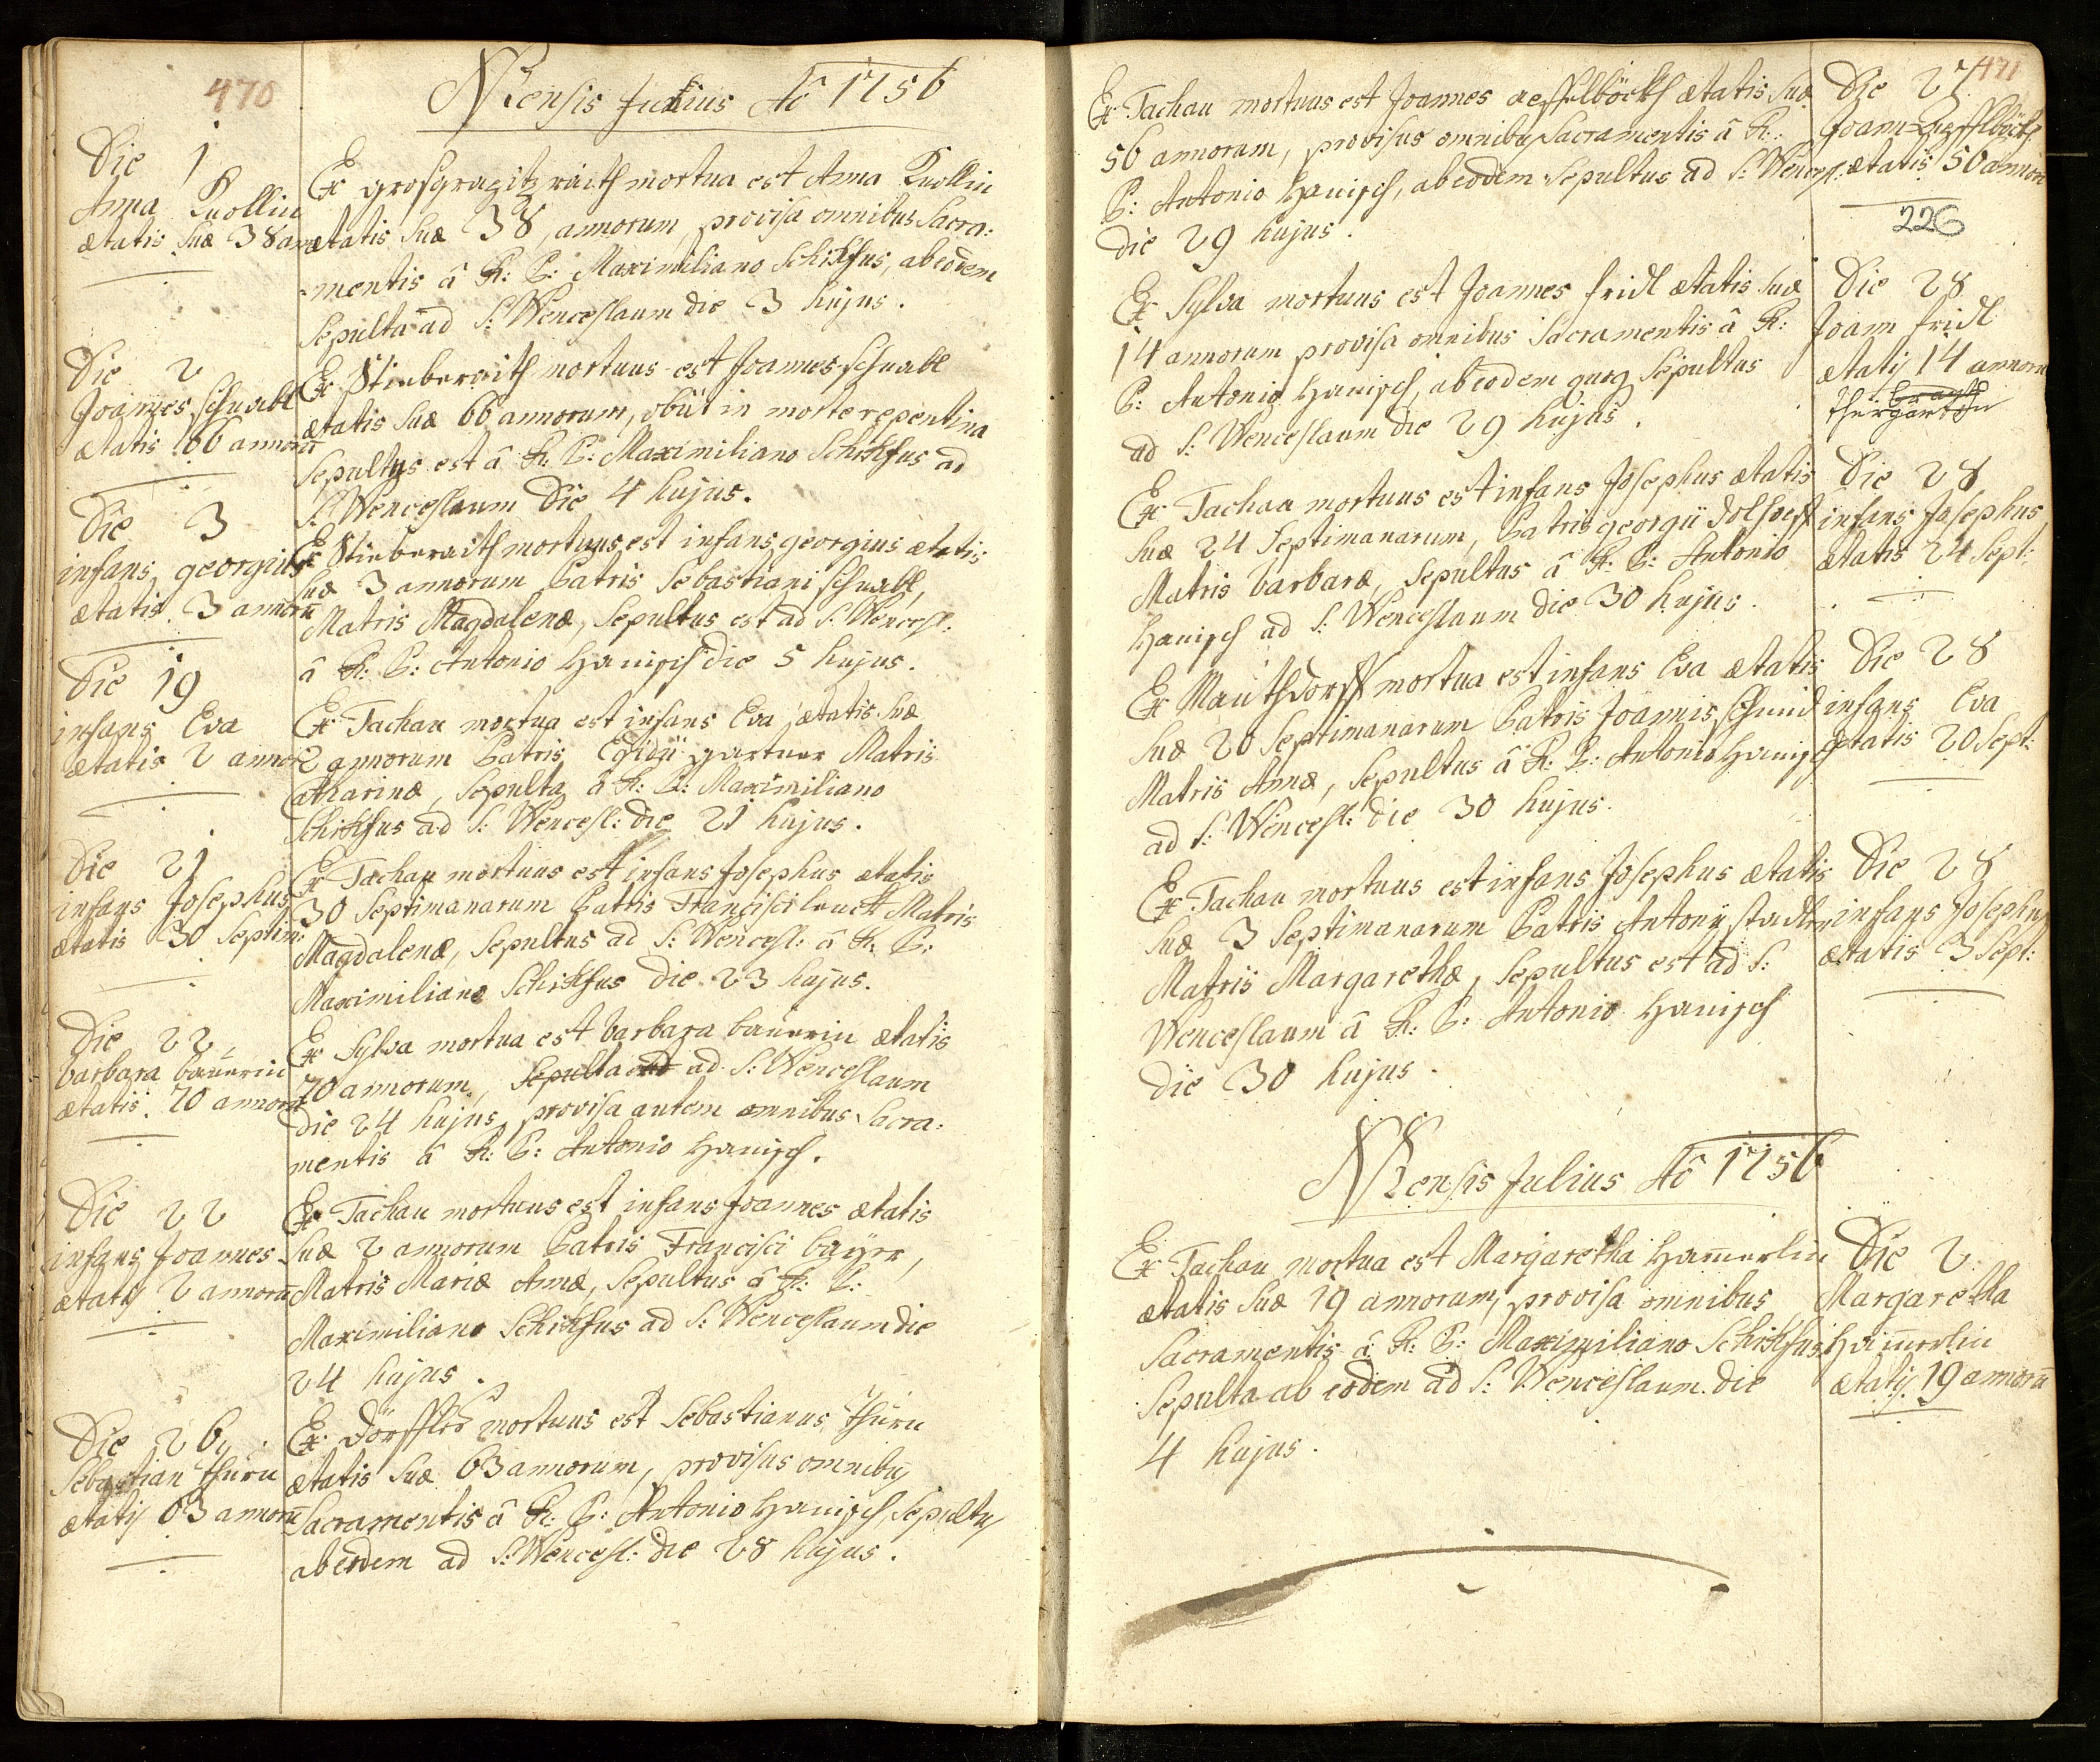 470
Mensis Junius Aõ 1756
Die 1
Anna Knollin
ætatis suæ 38 an
Ex grosgragitzraith mortua est Anna Knollin
ætatis suæ 38, annorum, provisa omnibus Sacra:
mentis â R: P: Maximiliano Schikfus, ab eodem
sepulta ad S: Wenceslaum die 3 hujus.
Die 2
Joannes schnabl
ætatis 66 annorũ
Ex Stieberaith mortuus est Joannes schnabl
ætatis suæ 66 annorum, obiit in morte repentina
sepultus est â R: P: Maximiliano Schikfus ad
S: Wenceslaum Die 4 hujus.
Die 3
infans georgius
ætatis 3 annorũ
Ex Stieberaith mortuus est infans georgius ætatis
suæ 3 annorum Patris Sebastiani schnabl,
Matris Magdalenæ, sepultus est ad S: Wencesl:
â R: P: Antonio Hanisch die 5 hujus.
Die 19
infans Eva
ætatis 2 anno
Ex Tachau mortua est infans Eva, ætatis suæ
2 annorum Patris Egidii gartner Matris
Catharinæ, sepulta â R: P: Maximiliano
Schikfus ad S: Wencesl: die 21 hujus.
Die 21
infans Josephus
ætatis 30 Septim:
Ex Tachau mortuus est infans Josephus ætatis
30 Septimanarum Patris Francisci leuck Matris
Magdalenæ, sepultus ad S: Wencesl: â R: P:
Maximiliano Schikfus die 23 hujus.
Die 22
barbara baüerin
ætatis 70 annorũ
Ex Sylva mortua est barbara baüerin ætatis
70 annorum, sepulta ad S: Wenceslaum
die 24 hujus, provisa autem omnibus Sacra:
mentis â R: P: Antonio Hanisch.
Die 22
infans Joannes
ætatis 2 annorũ
Ex Tachau mortuus est infans Joannes ætatis
suæ 2 annorum Patris Francisci baÿer,
Matris Mariæ Annæ, sepultus â R: P:
Maximiliano Schikfus ad S: Wenceslaum die
24 hujus.
Die 26
Sebastian thürn
ætatis 63 annorũ
Ex Dörffles mortuus est Sebastianus thürn
ætatis suæ 63 annorum, provisus omnibus
Sacramentis â R: P: Antonio Hanisch, sepultus
ab eodem ad S: Wencesl: die 28 hujus.
471
Ex Tachau mortuus est Joannes ætatis suæ
56 annorum, provisus omnibus Sacramentis â R:
P: Antonio Hanisch, ab eodem sepultus ad S: Wencesl:
die 29 hujus.
Die 27
Joann
ætatis 56 annorũ
226
Ex Sylva mortuus est Joannes fridl ætatis suæ
14 annorum provisa omnibus Sacramentis â R:
P: Antonio Hanisch, ab eodem quoq sepultus
ad S: Wenceslaum die 29 hujus.
Die 28
Joann fridl
ætatis 14 annorũ
thiergarten
Ex Tachau mortuus est infans Josephus ætatis
suæ 24 Septimanarum, Patris georgii dolhoepf
Matris barbaræ, sepultus â R: P: Antonio
Hanisch ad S: Wenceslaum die 30 hujus.
Die 28
infans Josephus
ætatis 24 Sept:
Ex Mauthdorff mortua est infans Eva ætatis
suæ 20 Septimanarum Patris Joannis schmid
Matris Annæ, sepultus â R: P: Antonio Hanisch
ad S: Wencesl: die 30 hujus.
Die 28
infans Eva
ætatis 20 Sept:
Ex Tachau mortuus est infans Josephus ætatis
suæ 3 Septimanarum Patris Antonÿ stadler
Matris Margarethæ, sepultus est ad S:
Wenceslaum â R: P: Antonio Hanisch
die 30 hujus.
Die 28
infans Josephus
ætatis 3 Sept:
Mensis Julius Aõ 1756
Ex Tachau mortua est Margaretha Ham̃erlin
ætatis suæ 19 annorum, provisa omnibus
Sacramentis â R: P: Maximiliano Schikfus
sepulta ab eodem ad S: Wenceslaum die
4 hujus.
Die 2
Margaretha
Ham̃erlin
ætatis 19 annorũ